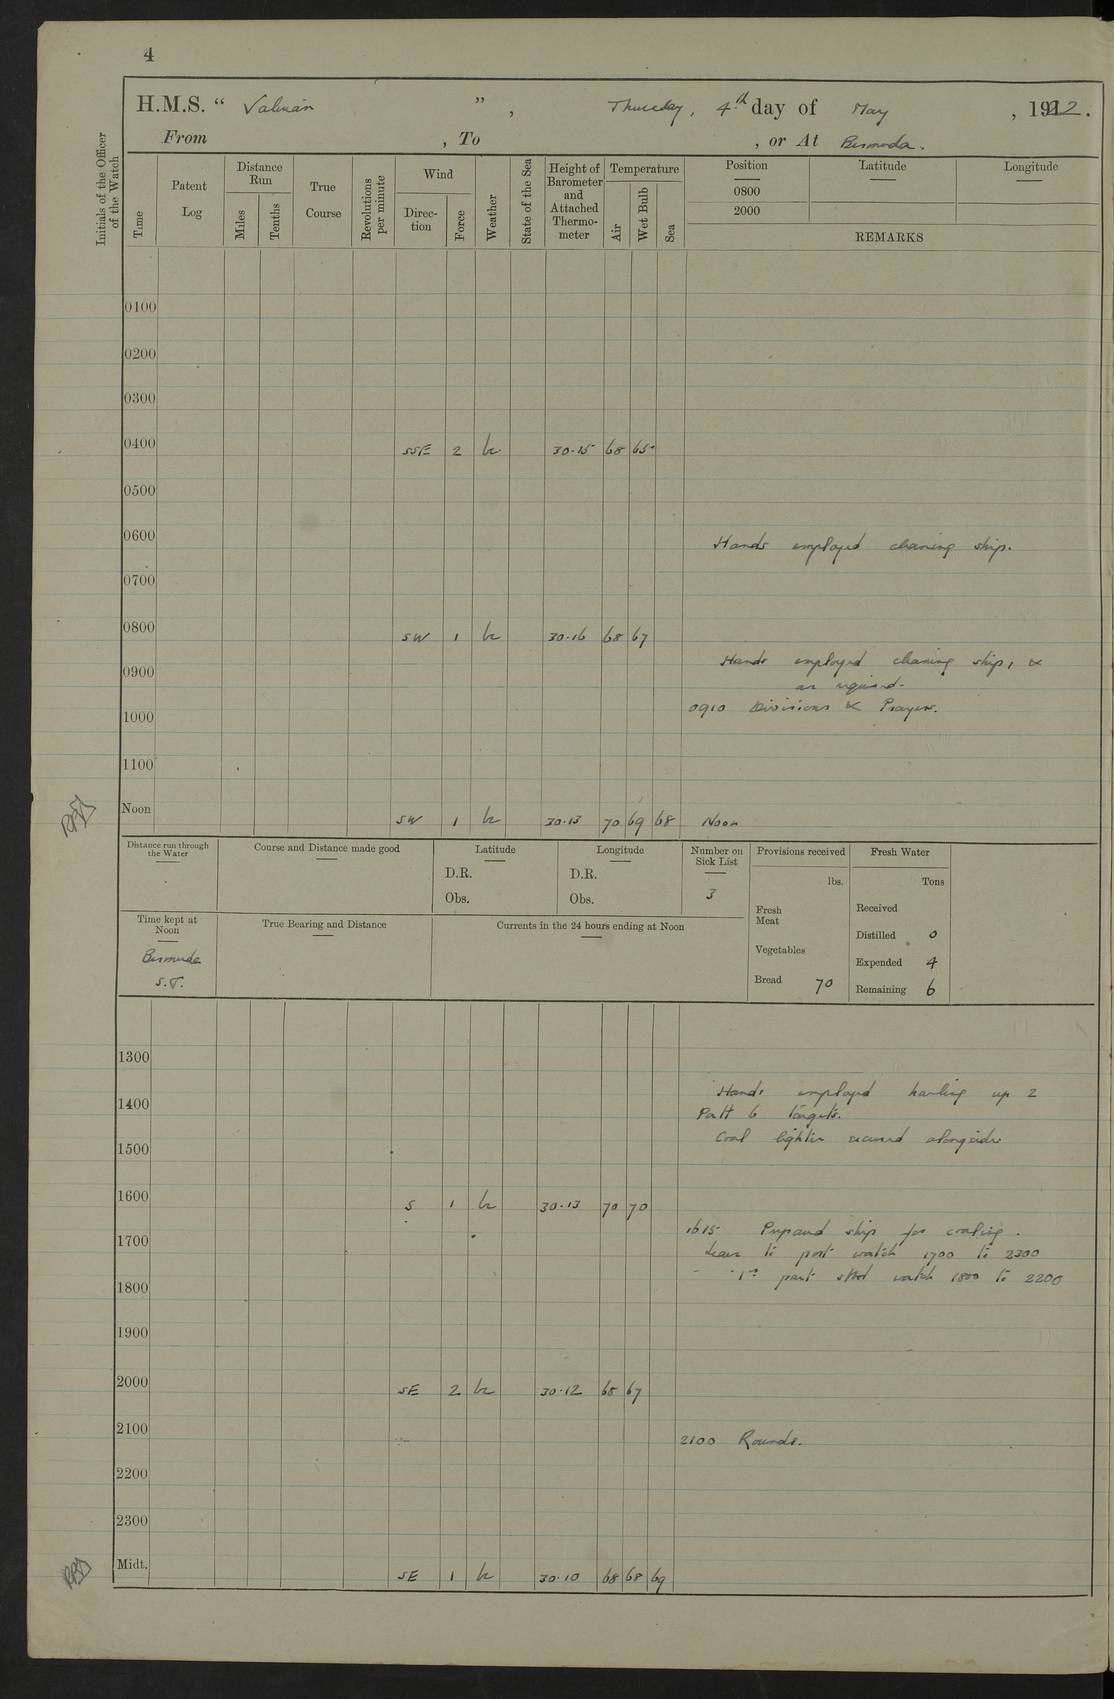 4
H.M.S. “ Valerian ” , Thursday, 4th day of May , 1922.
From , To , or At Bermuda.
Initials of the Officer of the Watch
Time
Patent Log
Distance Run
Miles
Tenths
True Course
Revolutions per minute
Wind
Direc-tion
Force
Weather
State of the Sea
Height of Barometer and Attached Thermo-meter
Temperature
Air
Wet Bulb
Sea
Position Latitude Longitude
0800
2000
REMARKS
0100
0200
0300
0400 SSE 2 bc 30.15 68 65
0500
0600 Hands employed cleaning ship.
0700
0800 SW 1 bc 30.16 68 67
Hands employed cleaning ship, &
0900 as required.
0910 Divisions & Prayers.
1000
1100
Noon SW 1 bc 30.13 70 69 68 Noon
Distance run through the Water
Course and Distance made good
Latitude
D.R.
Obs.
Longitude
D.R.
Obs.
Number on Sick List
3
Provisions received
lbs.
Fresh Meat
Vegetables
Bread 70
Fresh Water
Tons
Received
Distilled 0
Expended 4
Remaining 6
Time kept at Noon
Bermuda
S.T.
True Bearing and Distance
Currents in the 24 hours ending at Noon
1300
Hands employed hauling up 2
1400 Patt 6 targets.
Coal lighter secured alongside
1500
1600 S 1 bc 30.13 70 70
1615 Prepared ship for coaling.
1700 Leave to port watch 1700 to 2300
- - 1st part stbd watch 1800 to 2200
1800
1900
2000 SE 2 bc 30.12 68 67
2100 2100 Rounds.
2200
2300
Midt. SE 1 bc 30.10 68 68 69